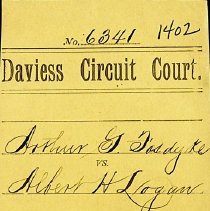 No. 6341 1402
Daviess Circuit Court.
Arthur G Fosdyke
vs.
Albert H Logan